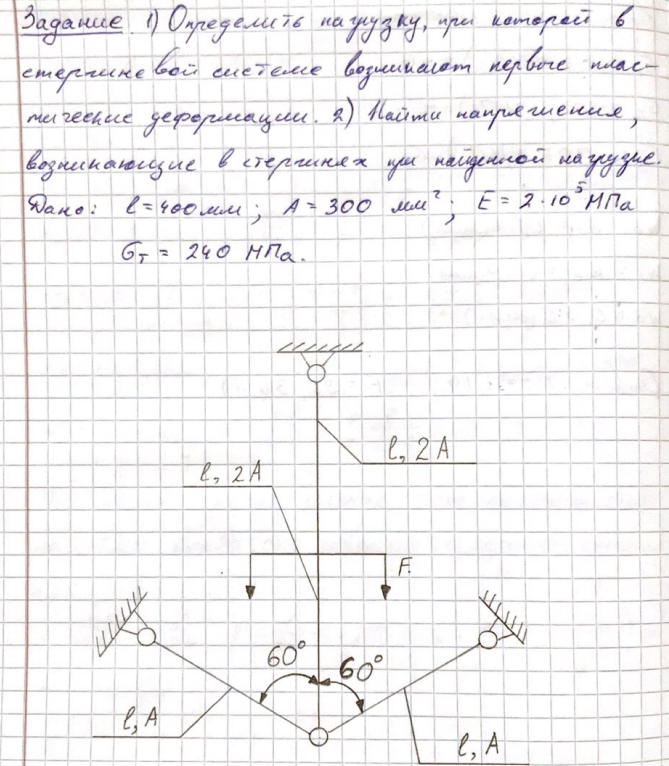 Задание 1) Определить нагрузку, при которой в
стержневой системе возникают первые плас-
тические деформации. 2) Найти напряжения,
возникающие в стержнях при найденной нагрузке.
Дано: l=400мм; A=300 мм²; E=2·10⁵ МПа
σт = 240 МПа.
l, 2A
l, 2A
F.
60° 60°
l, A
l, A